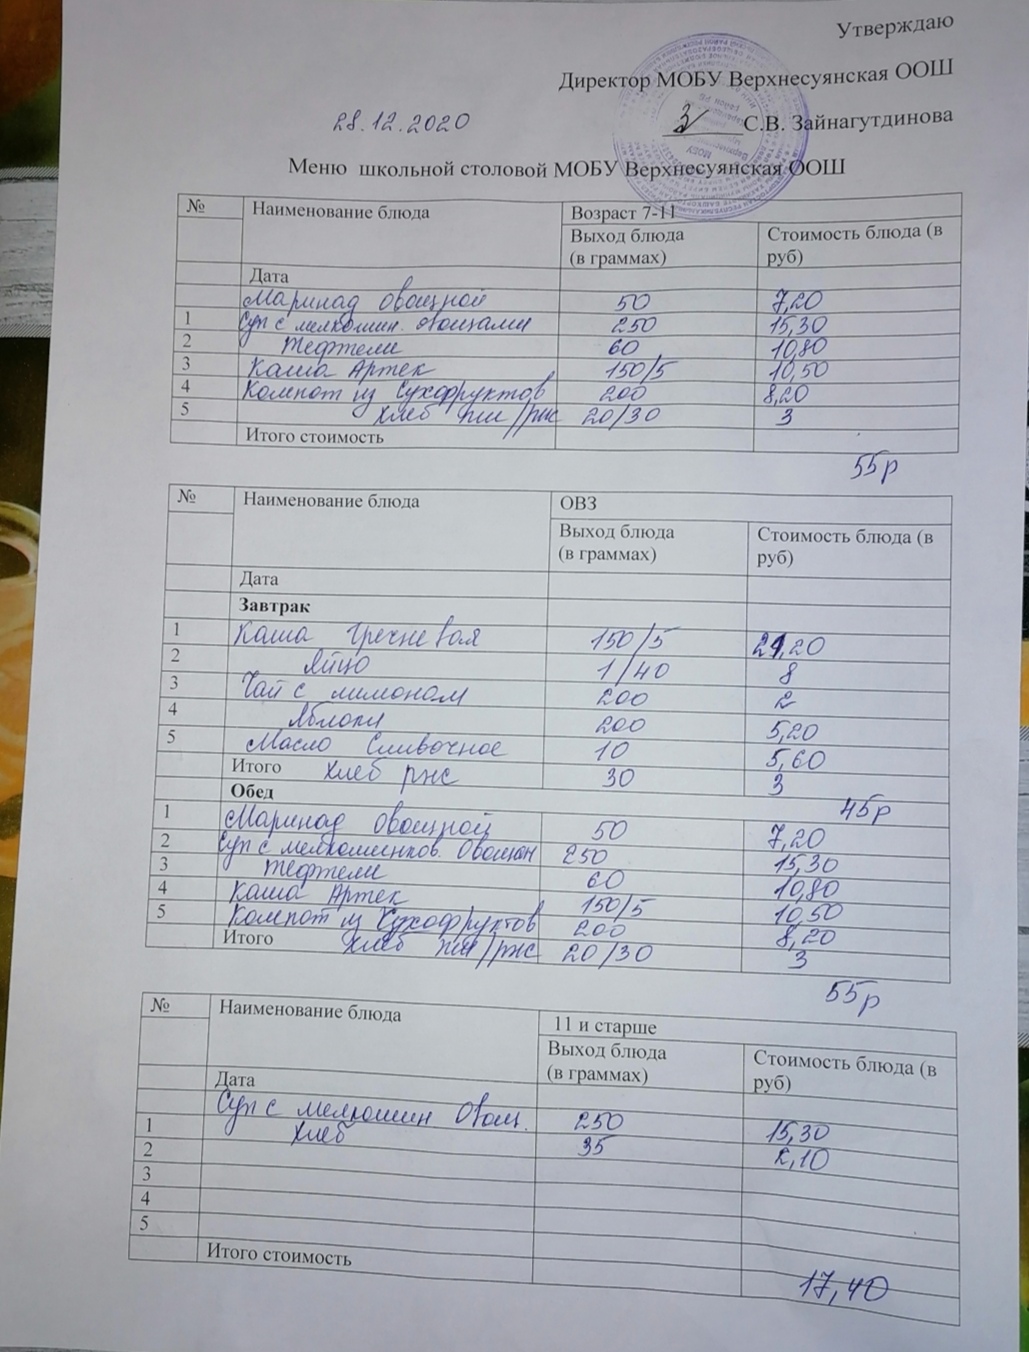 Утверждаю
Директор МОБУ Верхнесуянская ООШ
28.12.2020 С.В. Зайнагутдинова
Меню школьной столовой МОБУ Верхнесуянская ООШ
№ Наименование блюда Возраст 7-11
Выход блюда (в граммах) Стоимость блюда (в руб)
Дата
Маринад овощной 50 7,20
1 Суп с мелкошин. овощами 250 15,30
2 Тефтели 60 10,80
3 Каша Артек 150/5 10,50
4 Компот из Сухофруктов 200 8,20
5 хлеб пш/рж 20/30 3
Итого стоимость
55р
№ Наименование блюда ОВЗ
Выход блюда (в граммах) Стоимость блюда (в руб)
Дата
Завтрак
1 Каша гречневая 150/5 21,20
2 Яйцо 1/40 8
3 Чай с лимоном 200 2
4 Яблоки 200 5,20
5 Масло Сливочное 10 5,60
Итого хлеб рж 30 3
Обед 45р
1 Маринад овощной 50 7,20
2 Суп с мелкошинков. Овощ 250 15,30
3 Тефтели 60 10,80
4 Каша Артек 150/5 10,50
5 Компот из Сухофруктов 200 8,20
Итого хлеб пш/рж 20/30 3
55р
№ Наименование блюда 11 и старше
Выход блюда (в граммах) Стоимость блюда (в руб)
Дата
Суп с мелкошин Овощ. 250 15,30
1 хлеб 35 2,10
2
3
4
5
Итого стоимость
17,40